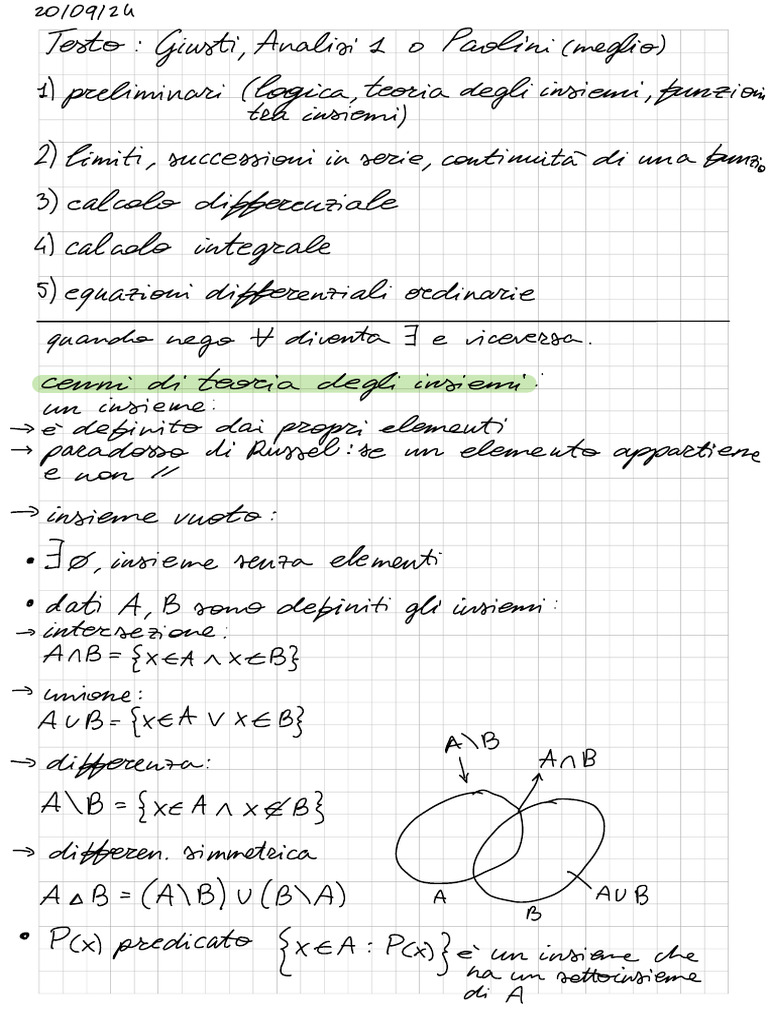 20/09/24
Testo: Giusti, Analisi 1 o Paolini (meglio)
1) preliminari (logica, teoria degli insiemi, funzioni
tra insiemi)
2) limiti, successioni in serie, continuità di una funzio
3) calcolo differenziale
4) calcolo integrale
5) equazioni differenziali ordinarie
quando nego ∀ diventa ∃ e viceversa.
cenni di teoria degli insiemi:
un insieme:
→ è definito dai propri elementi
→ paradosso di Russel: se un elemento appartiene
e non //
→ insieme vuoto:
• ∃ ∅, insieme senza elementi
• dati A, B sono definiti gli insiemi:
→ intersezione:
A∩B = {x∈A ∧ x∈B}
→ unione:
A∪B = {x∈A ∨ x∈B}
→ differenza:
A\B = {x∈A ∧ x∉B}
→ differen. simmetrica
A △ B = (A\B) ∪ (B\A)
A\B
A∩B
A
B
A∪B
• P(x) predicato {x∈A : P(x)} è un insieme che
ha un sottoinsieme
di A